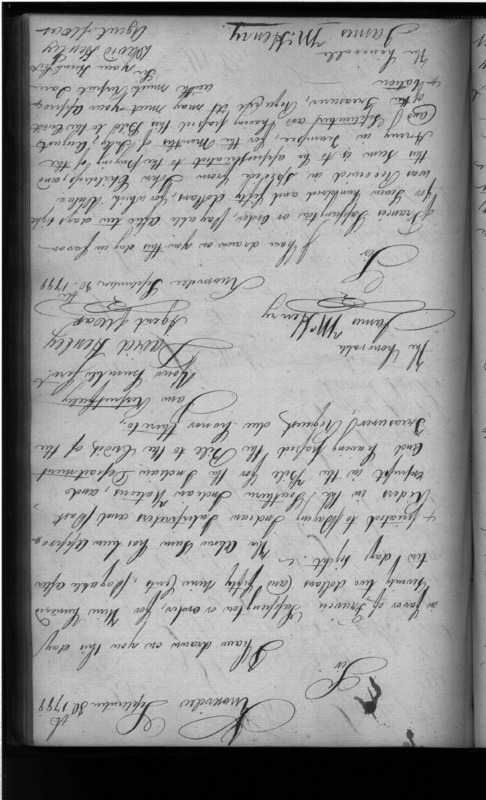 Knoxville September 30th 1799
Sir
I have drawn on you this day
in favor of Francis Tappington or order, for Nine hundred
Seventy two dollars and fifty Nine Cents, payable after
ten days sight.
The above Sum has been appro-
priated to paying Indian Interpreters and Post
Riders in the Southern Indian Nations, and
expresses in this for the Indian Department
And having passed the Bill to the Credit of the
Treasurer, Request due honor thereto,
I am Respectfully
Your humble Servt.
David Henley
Agent of War
The honorable
James McHenry
Knoxville September 30. 1799
Sir
I have drawn on you this day in favor
of Francis Tappington or order, payable after ten days sight
for Seven hundred and fifty dollars, for which Value
was Received in Specie from John Chisholm, and
this Sum is to be appropriated to the paying of the
Army in Tennessee, for the Months of July, August
and September and having passed this Bill to the Credit
of the Treasurer, Request it may meet your appro-
bation
I am
with much respect
Sir
your humb Servt
David Henley
Agent of War
The honorable
James McHenry